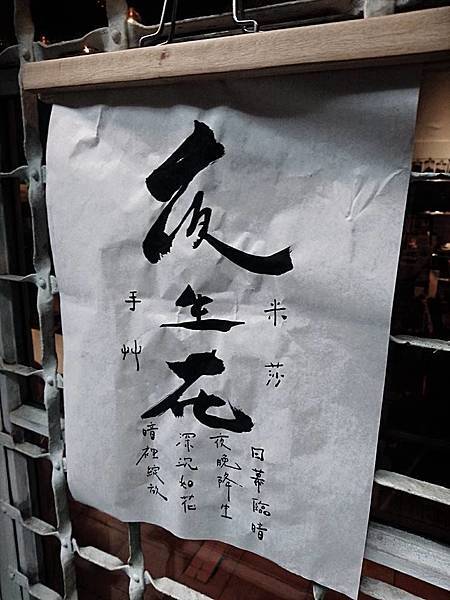 夜生花
米莎
手艸
日幕臨暗
夜晚降生
深沉如花
暗裡綻放